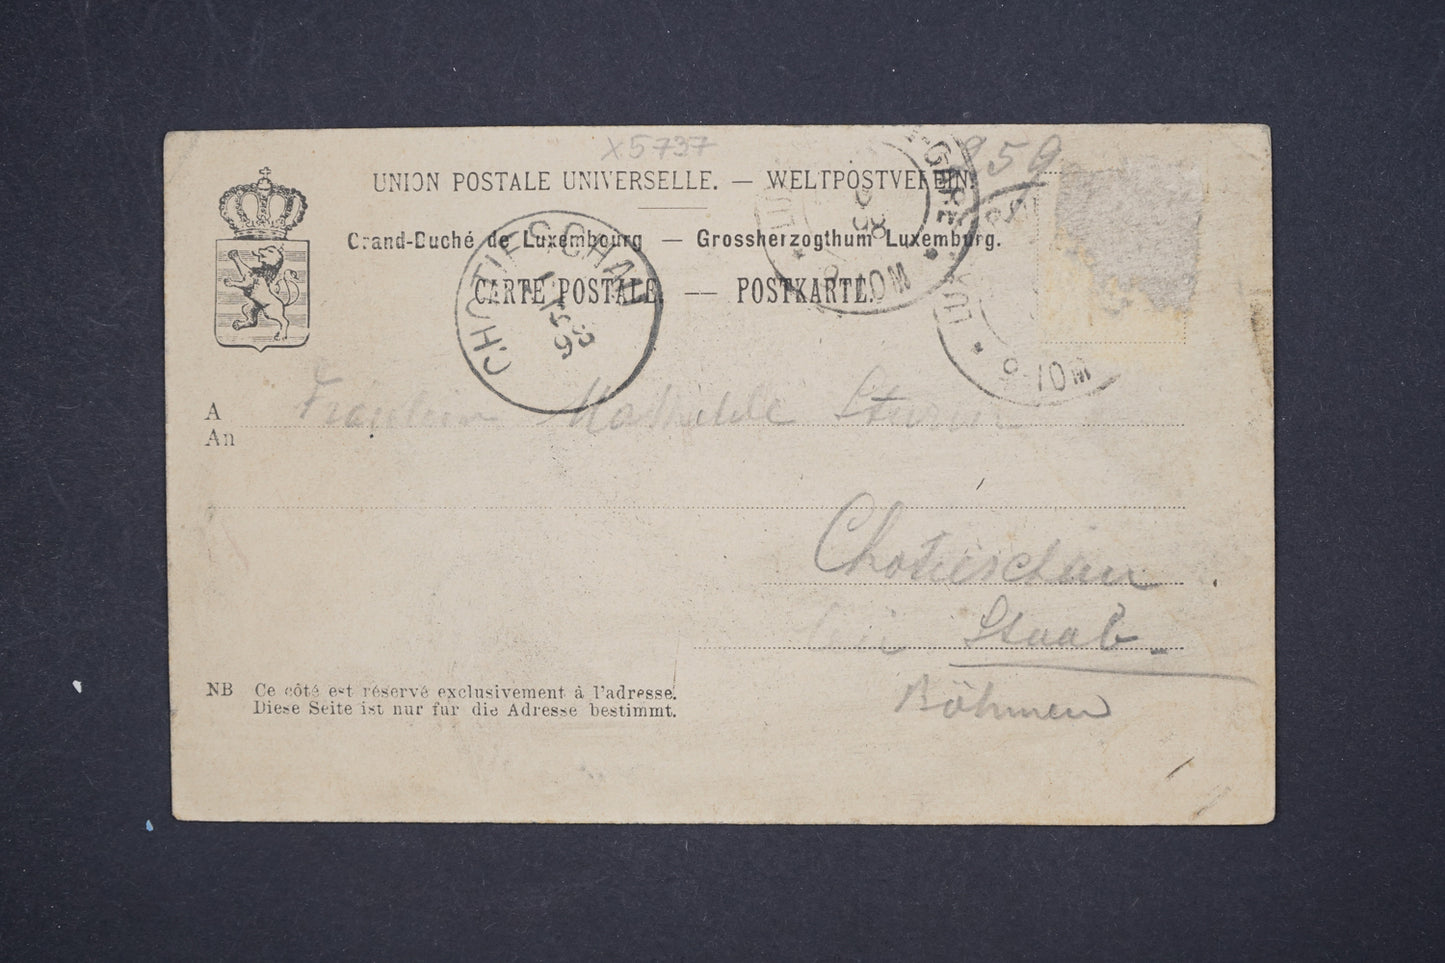 X5737
859
UNION POSTALE UNIVERSELLE. — WELTPOSTVEREIN.
Grand-Duché de Luxembourg — Grossherzogthum Luxemburg.
CARTE POSTALE. — POSTKARTE.
CHOTIESCHAU
LUX
9-10M
9-10M
A Fräulein Mathilde Sturm
An
Chotieschau
bei Staab
Böhmen
NB Ce côté est réservé exclusivement à l'adresse.
Diese Seite ist nur für die Adresse bestimmt.